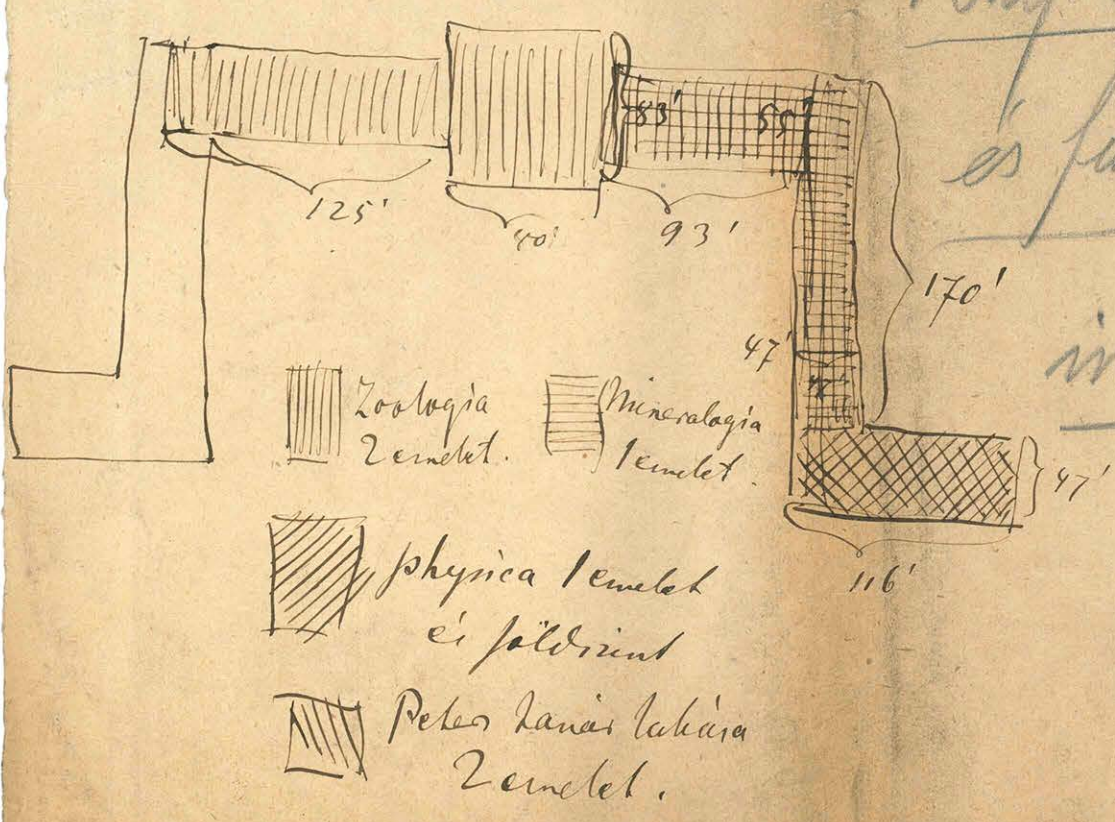 83'
55'
125'
93'
170'
47'
47'
116'
és
Zoologia
2 emelet.
Mineralogia
1 emelet.
physica 1 emelet
és földszint
Peter tanár lakása
2 emelet.